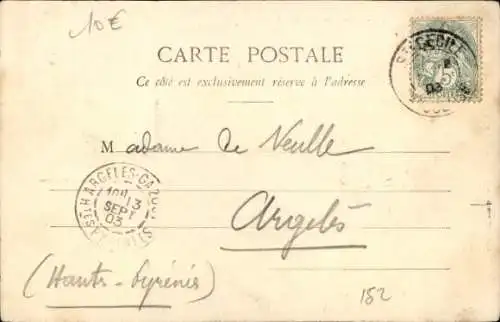 10€
CARTE POSTALE
Ce côté est exclusivement réservé à l'adresse
Madame de Neulle
Argelès
(Hautes-Pyrénées)
152
ARGELÈS-GAZOST
13
SEPT
03
HTES PYRÉNÉES
STE CÉCILE
03
5